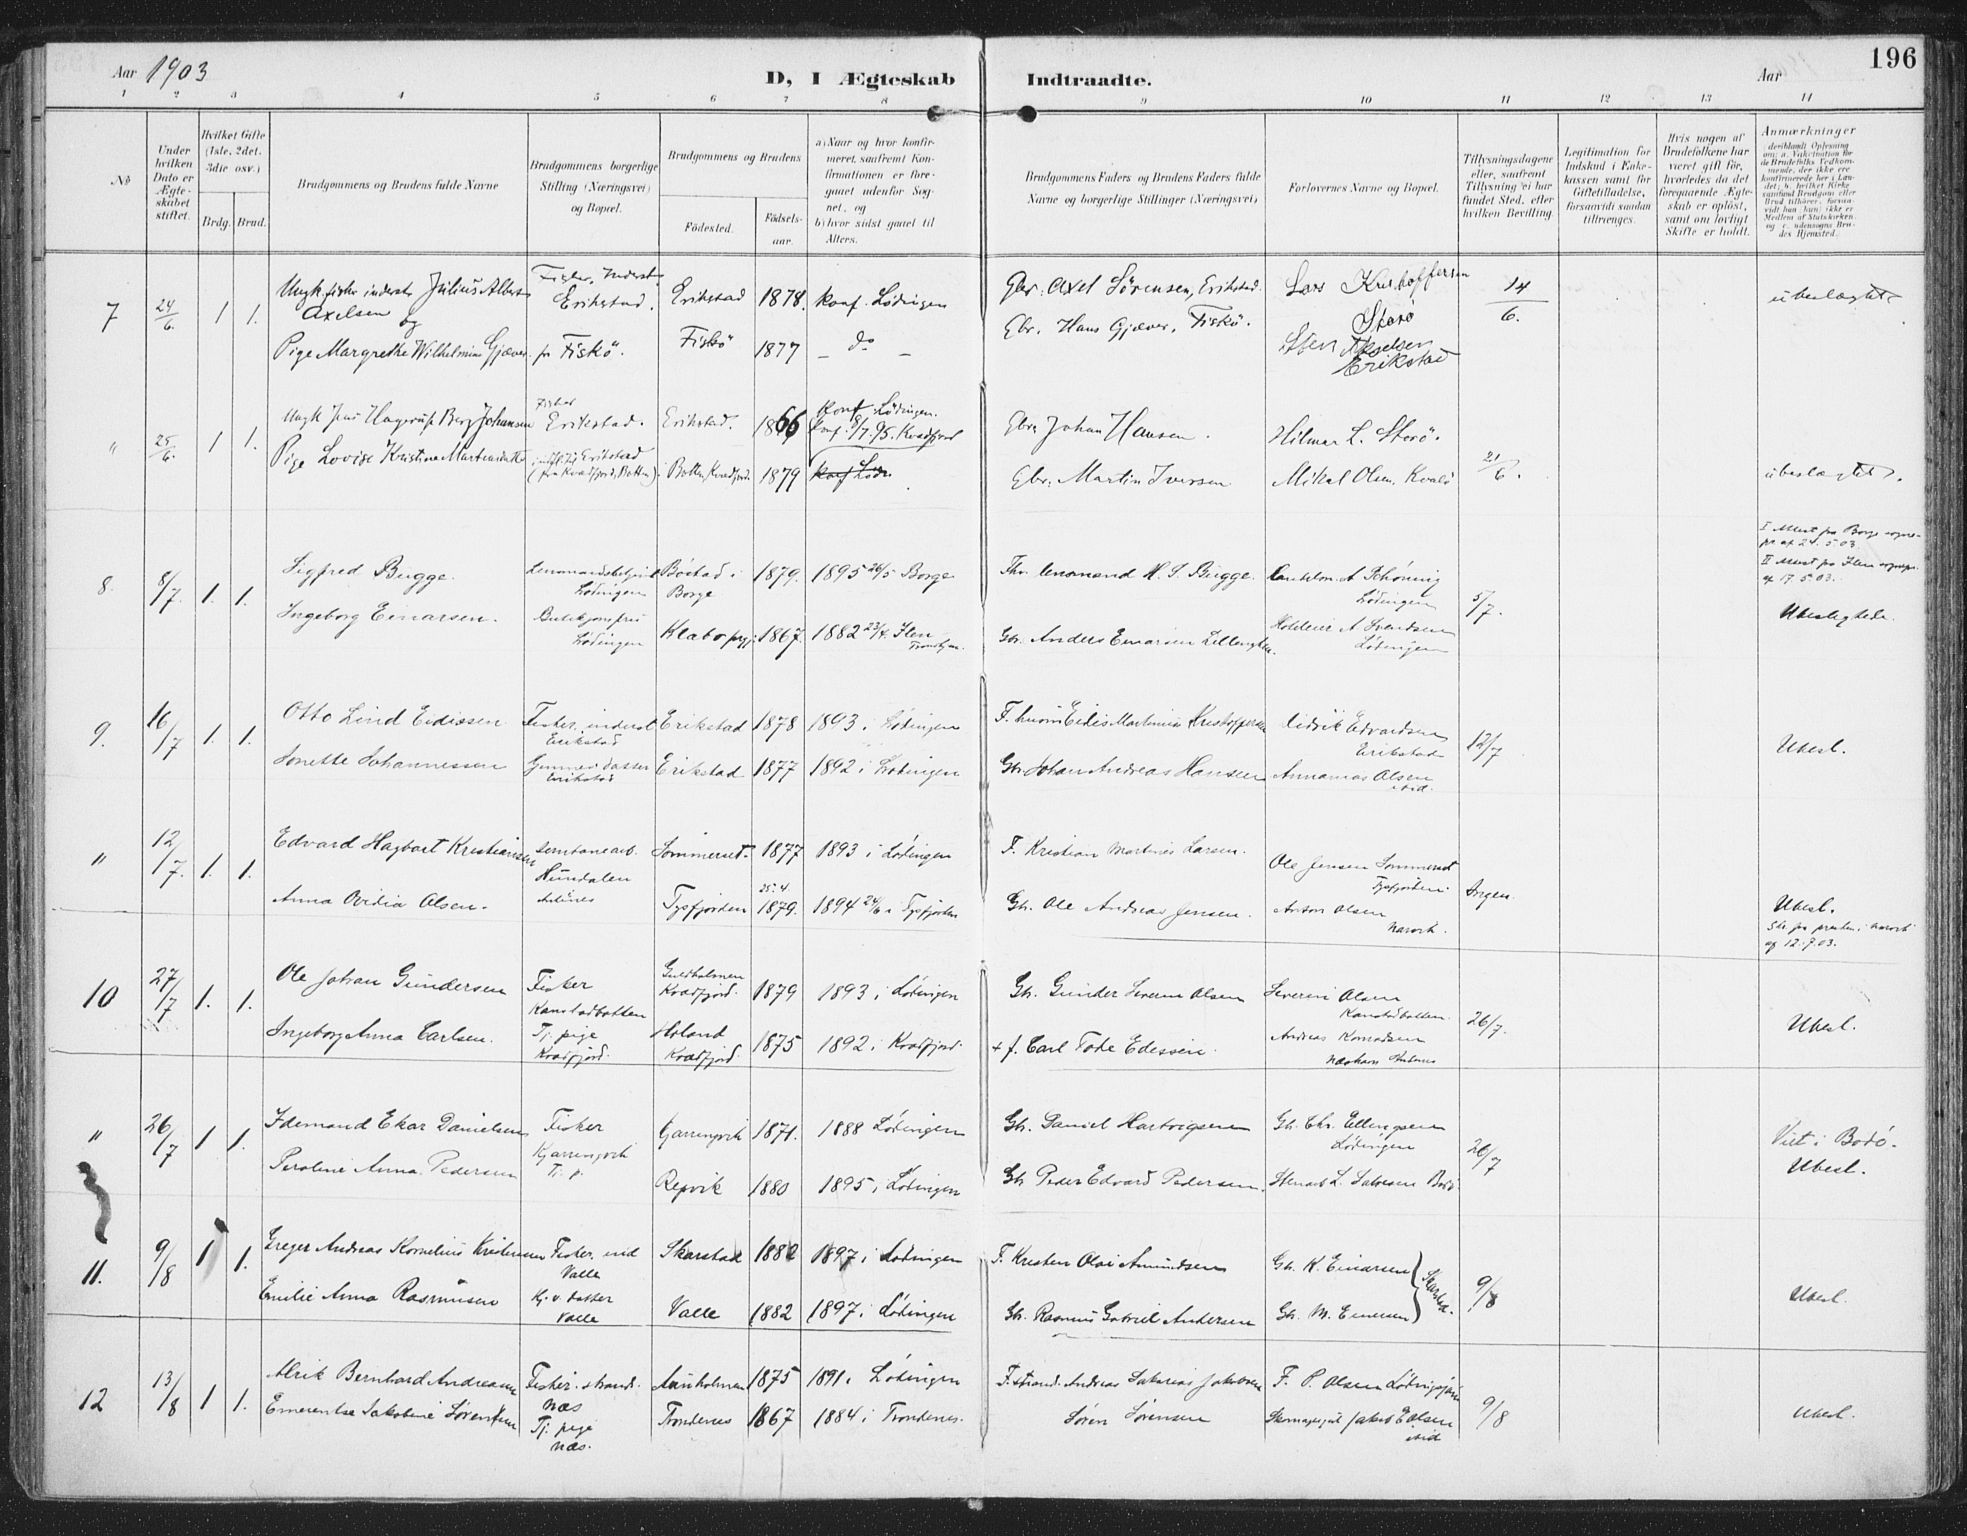 Aar 1903
D, I Ægteskab Indtraadte.
Aar
196
1 2 3 4 5 6 7 8 9 10 11 12 13 14
No
Under hvilken Dato er Ægteskabet stiftet.
Hvilket Gifte (1ste, 2det, 3die osv.)
Brdg. Brud.
Brudgommens og Brudens fulde Navne
Brudgommens borgerlige Stilling (Næringsvei) og Bopæl.
Brudgommens og Brudens
Födested.
Födselsaar.
a) Naar og hvor konfirmeret, saafremt Konfirmationen er foregaaet udenfor Sognet, og
b) hvor sidst gaaet til Alters.
Brudgommens Faders og Brudens Faders fulde Navne og borgerlige Stillinger (Næringsvei)
Forlovernes Navne og Bopæl.
Tillysningsdagene eller, saafremt Tillysning ei har fundet Sted, efter hvilken Bevilling.
Legitimation for Indskud i Enkekassen samt for Giftetilladelse, forsaavidt saadan tiltrænges.
Hvis nogen af Brudefolkene har været gift för, hvorledes da det foregaaende Ægteskab er oplöst, samt om lovligt Skifte er holdt.
Anmærkninger
7 24/6 1 1. Ungk. fisker inderst Julius Albert Axelsen og Fisker, Inderst, Erikstad. Erikstad 1878. konf. Lödingen Gbr. Axel Sörensen, Erikstad. Lars Kristoffersen Storö 14/6. ubeslægtet
Pige Margrethe Wilhelmine Gjæver fr Fiskö. Fiskö 1877 - do - Gbr. Hans Gjæver, Fiskö. Sten Akselsen Erikstad
" 25/6. 1 1. Ungk. Jens Hagerup Berg Johansen Fisker Erikstad. Erikstad. 1866 konf. Lödingen. Gbr. Johan Hansen. Hilmar L. Storö. 21/6.
Pige Lovise Kristine Martinsdatter Erikstad (fra Kvædfjord, Botten) Botten, Kvædfjord 1879 konf. Kvædfjord Gbr. Martin Iversen Mikal Olsen, Kvalö ubeslægtet.
8. 8/7. 1. 1. Sigfred Bugge. Lödingen Böstad i Borge 1879. 1895 26/5 Borge Lensmand H. S. Bugge. A Schöning Lödingen 5/7. I Attest fra Borge sognepr af 24.5.03.
II Attest fra Ilen sognepr. af 17.5.03.
Ingeborg Einarsen. Lödingen Klæbo 1867. 1882 23/4 Ilen Gbr. Anders Einarsen A Svendsen Lödingen Ubeslægtede.
9. 16/7 1. 1. Otto Lind Eidissen Fisker, inderst Erikstad Erikstad 1878 1893 i Lödingen Kristoffersen Edvardsen Erikstad 12/7 Ubesl.
Sonette Johannessen Erikstad Erikstad 1877 1892 i Lödingen Gbr. Johan Andreas Hansen Annanias Olsen ibid.
" 12/7. 1. 1. Edvard Hagbart Kristiansen Hundalen Sommerset. 1877 1893 i Lödingen F. Kristian Martines Larsen. Ole Jensen Sommerset Tysfjorden. Ingen.
Anna Ovidia Olsen. Tysfjorden 25.4. 1879. 1894 24/6 i Tysfjorden Gbr. Ole Andreas Jensen. Anton Olsen Narvik. Ubesl.
af 12.7.03.
10 27/7 1. 1. Ole Johan Gundersen Fisker Kanstadbotten Guldholmen Kvædfjord. 1879 1893 i Lödingen Gbr. Gunder Severin Olsen Severin Olsen Kanstadbotten 26/7. Ubesl.
Ingeborg Anna Carlsen. Tj. pige Kvædfjord. Holand Kvædfjord. 1875 1892 i Kvædfjord. + f. Carl Tode Edissen. Andreas Konradsen
" 26/7 1 1. Edemand Ekar Danielsen Fisker Kjærringvik Gjærringvik 1871. 1888 Lödingen Gbr. Daniel Hartvigsen Gbr. Chr. Ellingsen Lödingen 26/7 Viet i Bodö. Ubesl.
Peroline Anna Pedersen Tj. p. Repvik 1880 1895 i Lödingen Gbr. Peder Edvard Pedersen. Bodö
11. 9/8 1 1. Greger Andreas Kornelius Kristensen Fisker, ind Valle Skarstad 1882 1897 i Lödingen F. Kristen Olai Amundsen Gbr. K. Einarsen Skarstad. 9/8 Ubesl.
Emilie Anna Rasmussen Valle Valle 1882 1897 i Lödingen Gbr. Rasmus Gabriel Andersen Gbr. M. Einarsen
12 13/8 1 1. Alrik Bernhard Andreassen Fisker, strands. Næs 1875 1891 i Lödingen F. strand. Andreas Sakarias Jakobsen F. P. Olsen 9/8 Ubesl.
Emerentse Jakobine Sörensen Tj. pige Næs. Trondenes 1867 1884 i Trondenes. Sören Sörensen ibid